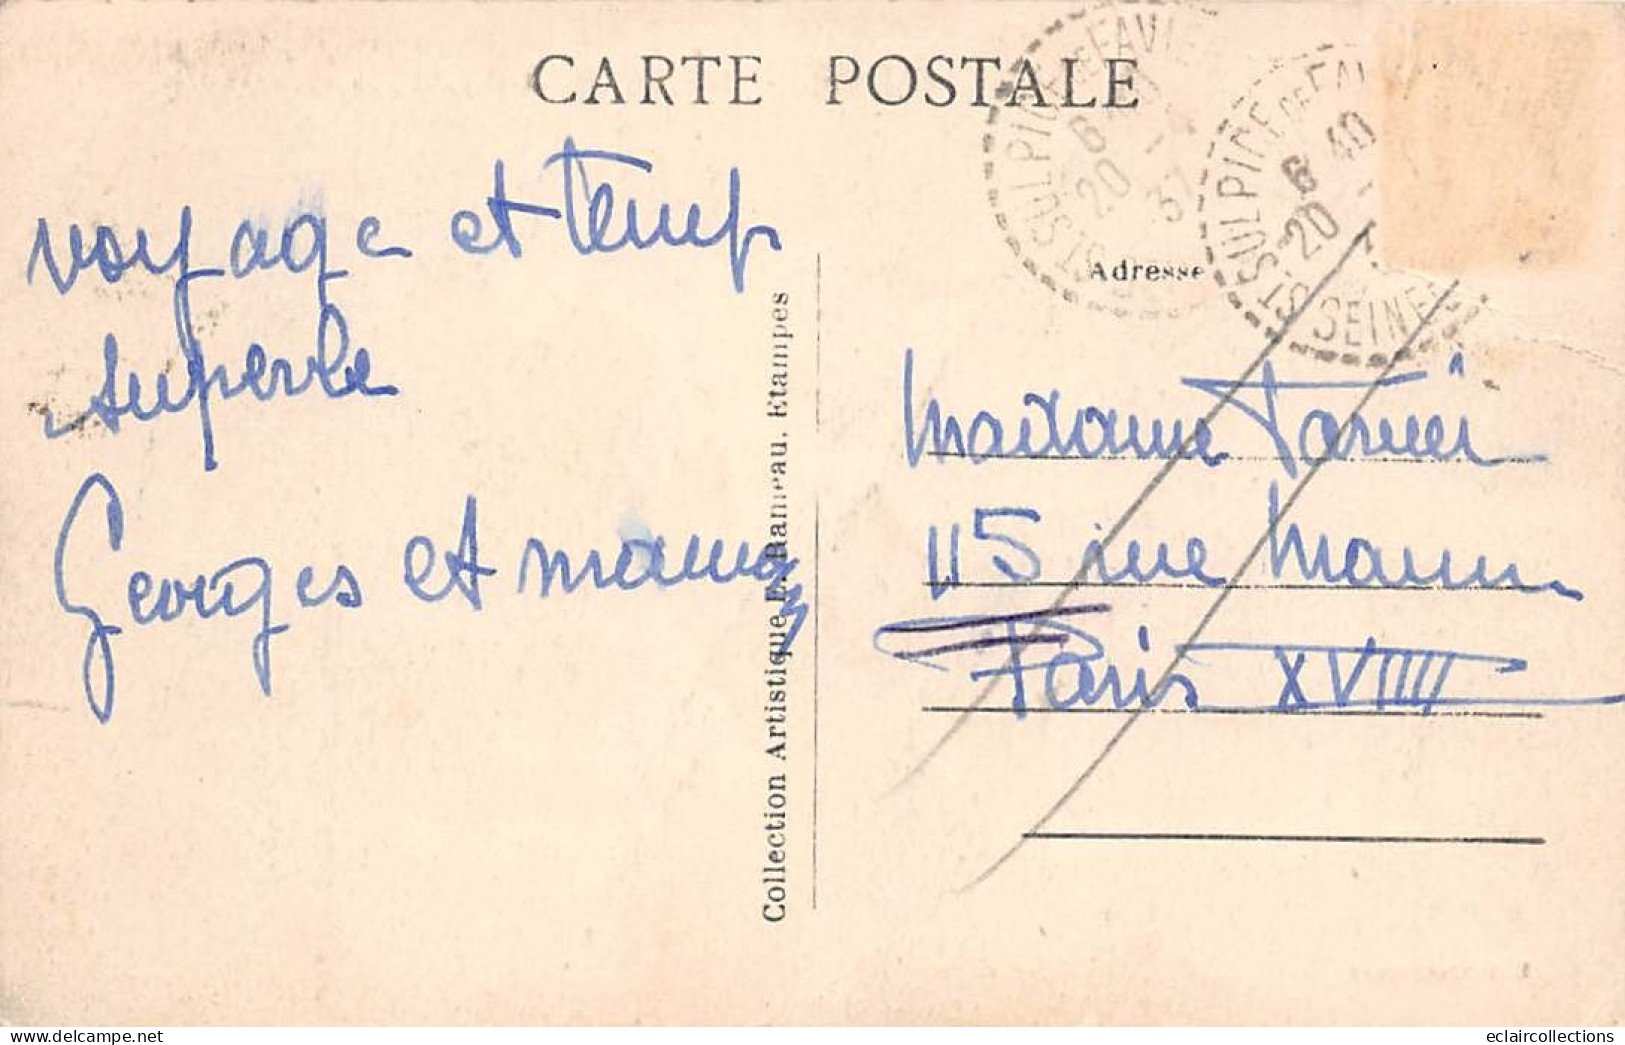 CARTE POSTALE
ST SULPICE DE FAVIE
6 20 37
ST SULPICE DE FAV
SEINE
6 40
20
voyage et temps
superbe
Georges et maman
Collection Artistique Rameau, Etampes
Adresse
Madame
115 rue
Paris XVIIII
eclaircollections